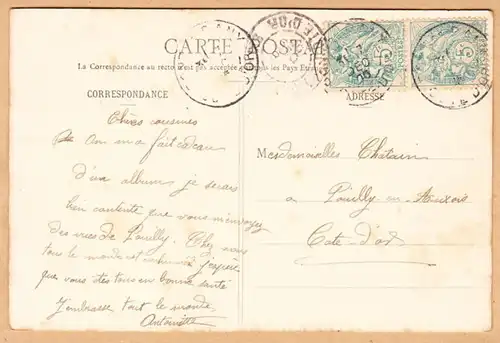 CARTE POSTALE
La Correspondance au recto n'est pas acceptée par tous les Pays Etrangers
CORRESPONDANCE
ADRESSE
Chères cousines
On m'a fait cadeau
d'un album, je serais
bien contente que vous m'envoyez
des vues de Pouilly. Chez nous
tous le monde est enrhumé, j'espère
que vous êtes tous en bonne santé
J'embrasse tout le monde.
Antoinette
Mesdemoiselles Chatain
à Pouilly-en-Auxois
Côte-d'or
COTE D'OR